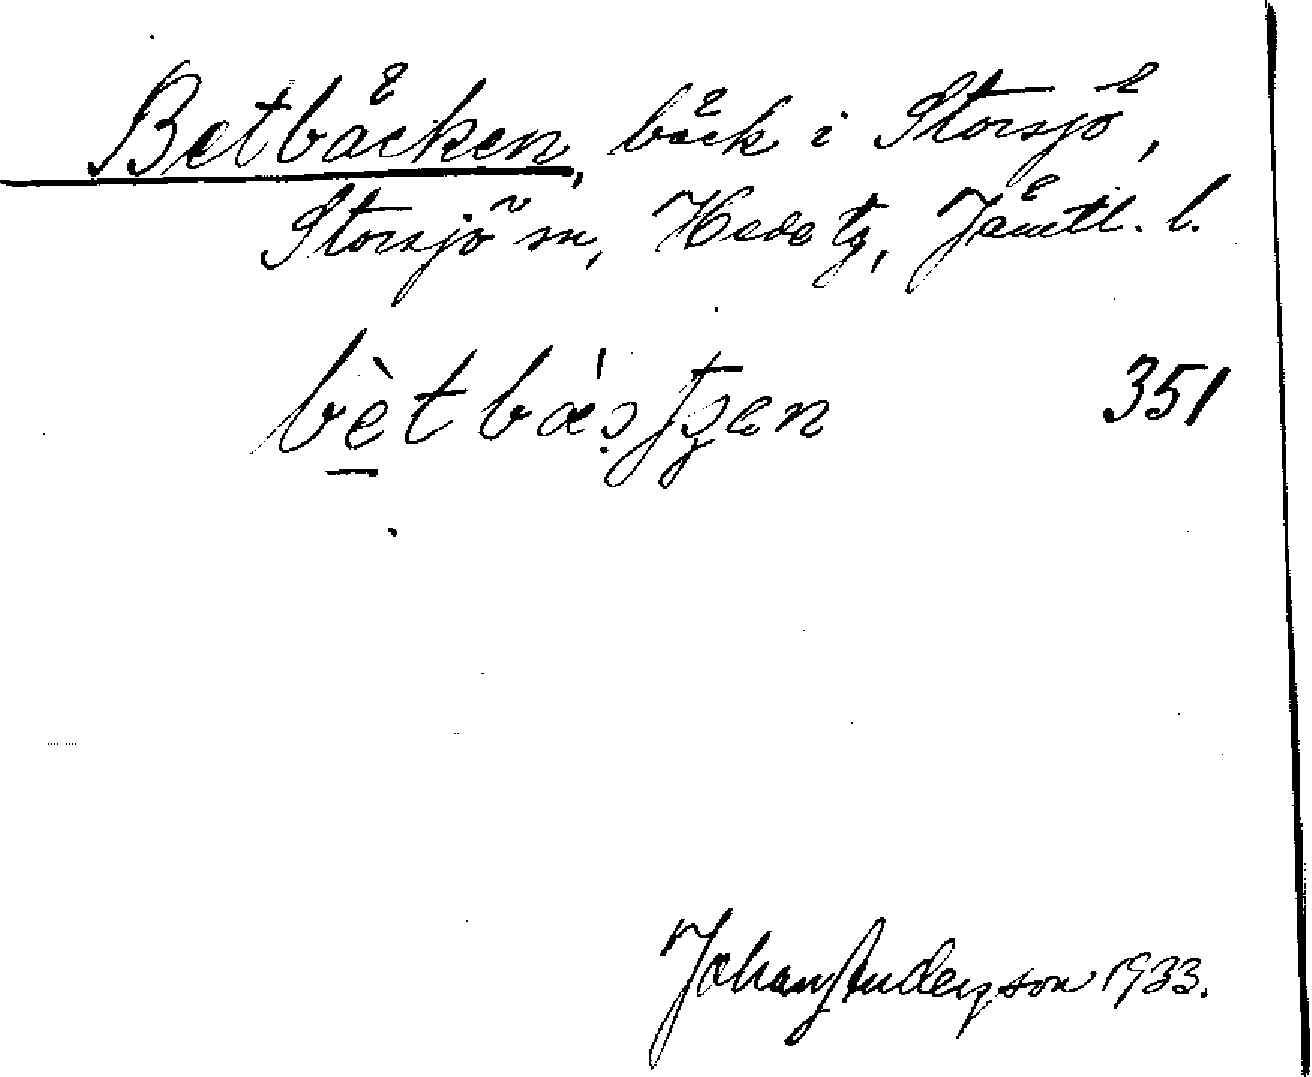 Betbäcken, bäck i Storsjö,
Storsjö sn, Hede tg, Jämtl. l.
351
Johan Anderzson 1933.